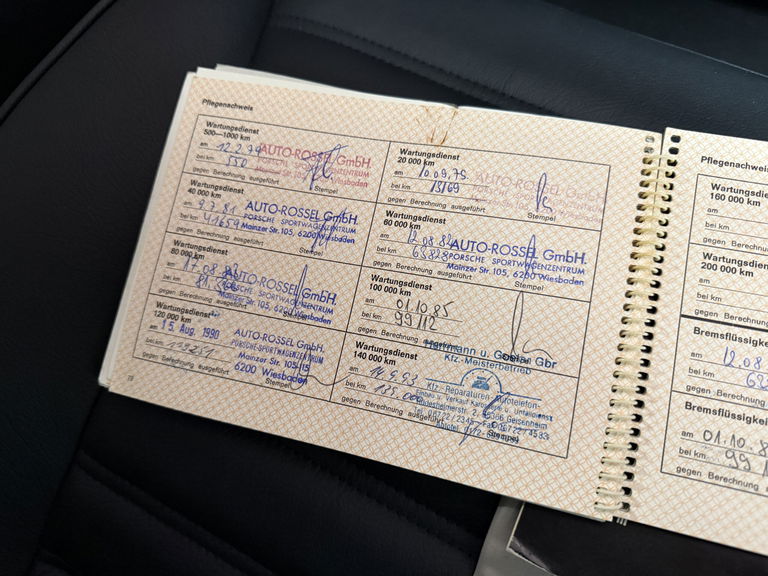 Pflegenachweis
Wartungsdienst
500—1000 km
am 12.2.79
bei km 550
gegen Berechnung ausgeführt
Stempel
AUTO-ROSSEL GmbH.
PORSCHE SPORTWAGENZENTRUM
Mainzer Str. 105, Wiesbaden
Wartungsdienst
20 000 km
am 10.09.79
bei km 13169
gegen Berechnung ausgeführt
Stempel
AUTO-ROSSEL
Wartungsdienst
40 000 km
am 9.2.81
bei km 41659
gegen Berechnung ausgeführt
Stempel
AUTO-ROSSEL GmbH.
PORSCHE SPORTWAGENZENTRUM
Mainzer Str. 105, 6200 Wiesbaden
Wartungsdienst
60 000 km
am 12.08.82
bei km 63828
gegen Berechnung ausgeführt
Stempel
AUTO-ROSSEL GmbH.
PORSCHE SPORTWAGENZENTRUM
Mainzer Str. 105, 6200 Wiesbaden
Wartungsdienst
80 000 km
am 17.08
bei km
gegen Berechnung ausgeführt
Stempel
AUTO-ROSSEL GmbH.
PORSCHE SPORTWAGENZENTRUM
Mainzer Str. 105, 6200 Wiesbaden
Wartungsdienst
100 000 km
am 01.10.85
bei km 99112
gegen Berechnung ausgeführt
Stempel
Wartungsdienst
120 000 km
am 15. Aug. 1990
bei km
gegen Berechnung ausgeführt
Stempel
AUTO-ROSSEL GmbH.
PORSCHE-SPORTWAGENZENTRUM
Mainzer Str. 105-115
6200 Wiesbaden
Wartungsdienst
140 000 km
am 14.9.93
bei km 135.000
gegen Berechnung ausgeführt
Stempel
Hartmann u. Gbr
Kfz.-Meisterbetrieb
Kfz-Reparaturen
u. Verkauf Karosserie u. Unfalldienst
Geisenheim
Pflegenachweis
Wartungsdie
160 000 km
am
bei km
gegen Berechnun
Wartungsdie
200 000 km
am
bei km
gegen Berechnu
Bremsflüssigke
am 12.08
bei km
gegen Berechnung
Bremsflüssigke
am 01.10.8
bei km 991
gegen Berechnung a